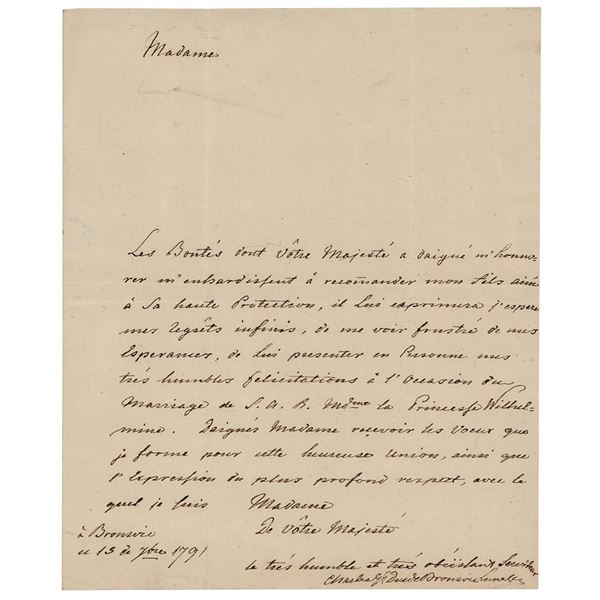 Madame
Les Bontés dont Vôtre Majesté a daigné m'honno-
rer m'enhardissent à recomander mon fils ainé
à Sa haute Protection, il lui exprimera j'espere
mes regrêts infinis, de me voir frustré de mes
Esperances, de lui presenter en Personne mes
trés humbles felicitations à l'Occasion du
Marriage de S. A. R. Mdme la Princesse Wilhel-
mine. Daignés Madame recevoir les Voeux que
je forme pour cette heureuse Union, ainsi que
l'Expression du plus profond respect, avec le
quel je suis Madame
De Vôtre Majesté
à Bronsvic
ce 13 de 7bre 1791
le trés humble et trés obéissant Serviteur
Charles G. Duc de Bronsvic Luneb.